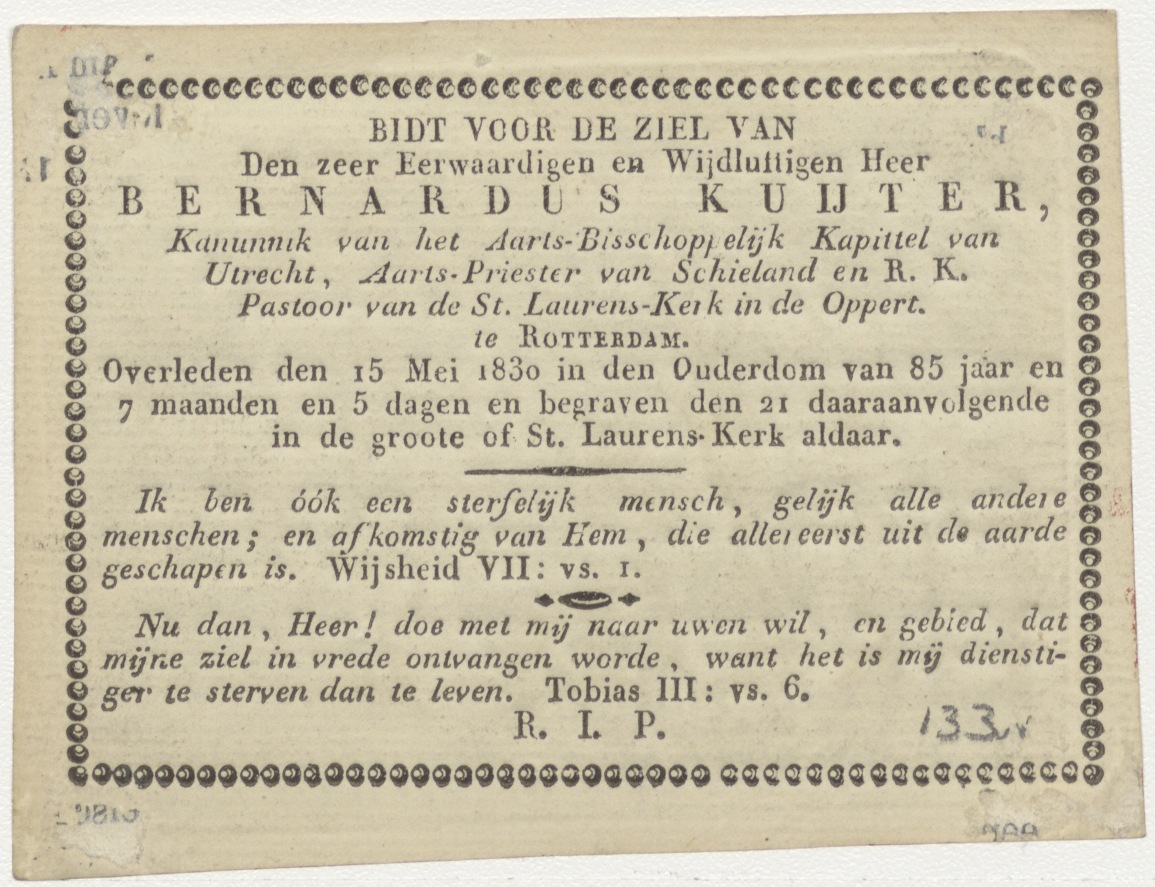 BIDT VOOR DE ZIEL VAN
Den zeer Eerwaardigen en Wijdluftigen Heer
BERNARDUS KUIJTER,
Kanunnik van het Aarts-Bisschoppelijk Kapittel van
Utrecht, Aarts-Priester van Schieland en R. K.
Pastoor van de St. Laurens-Kerk in de Oppert.
te ROTTERDAM.
Overleden den 15 Mei 1830 in den Ouderdom van 85 jaar en
7 maanden en 5 dagen en begraven den 21 daaraanvolgende
in de groote of St. Laurens-Kerk aldaar.
Ik ben óók een sterfelijk mensch, gelijk alle andere
menschen; en afkomstig van Hem, die allereerst uit de aarde
geschapen is. Wijsheid VII: vs. 1.
Nu dan, Heer! doe met mij naar uwen wil, en gebied, dat
mijne ziel in vrede ontvangen worde, want het is mij diensti-
ger te sterven dan te leven. Tobias III: vs. 6.
R. I. P.
133